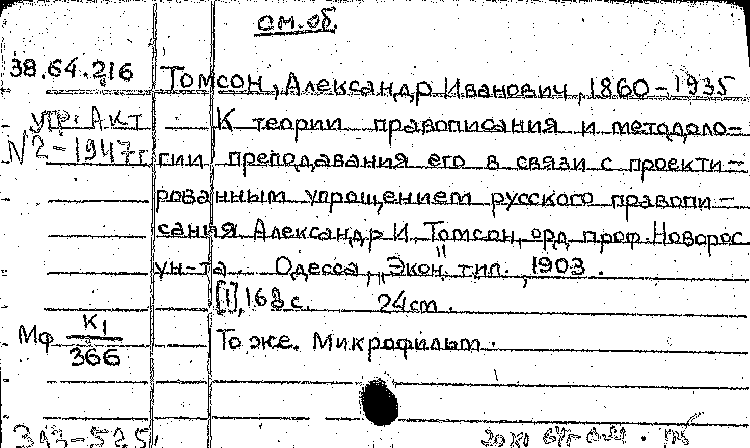 см.об.
38.64.216 Томсон, Александр Иванович, 1860-1935
утр. Акт К теории правописания и методоло-
№2-1947г. гии преподавания его в связи с проекти-
рованным упрощением русского правопи-
сания Александр И. Томсон, орд. проф. Новорос
ун-та. Одесса, "Экон." тип., 1903.
[1], 168 с. 24 cm.
Мф К1/366 То же. Микрофильм.
313-525